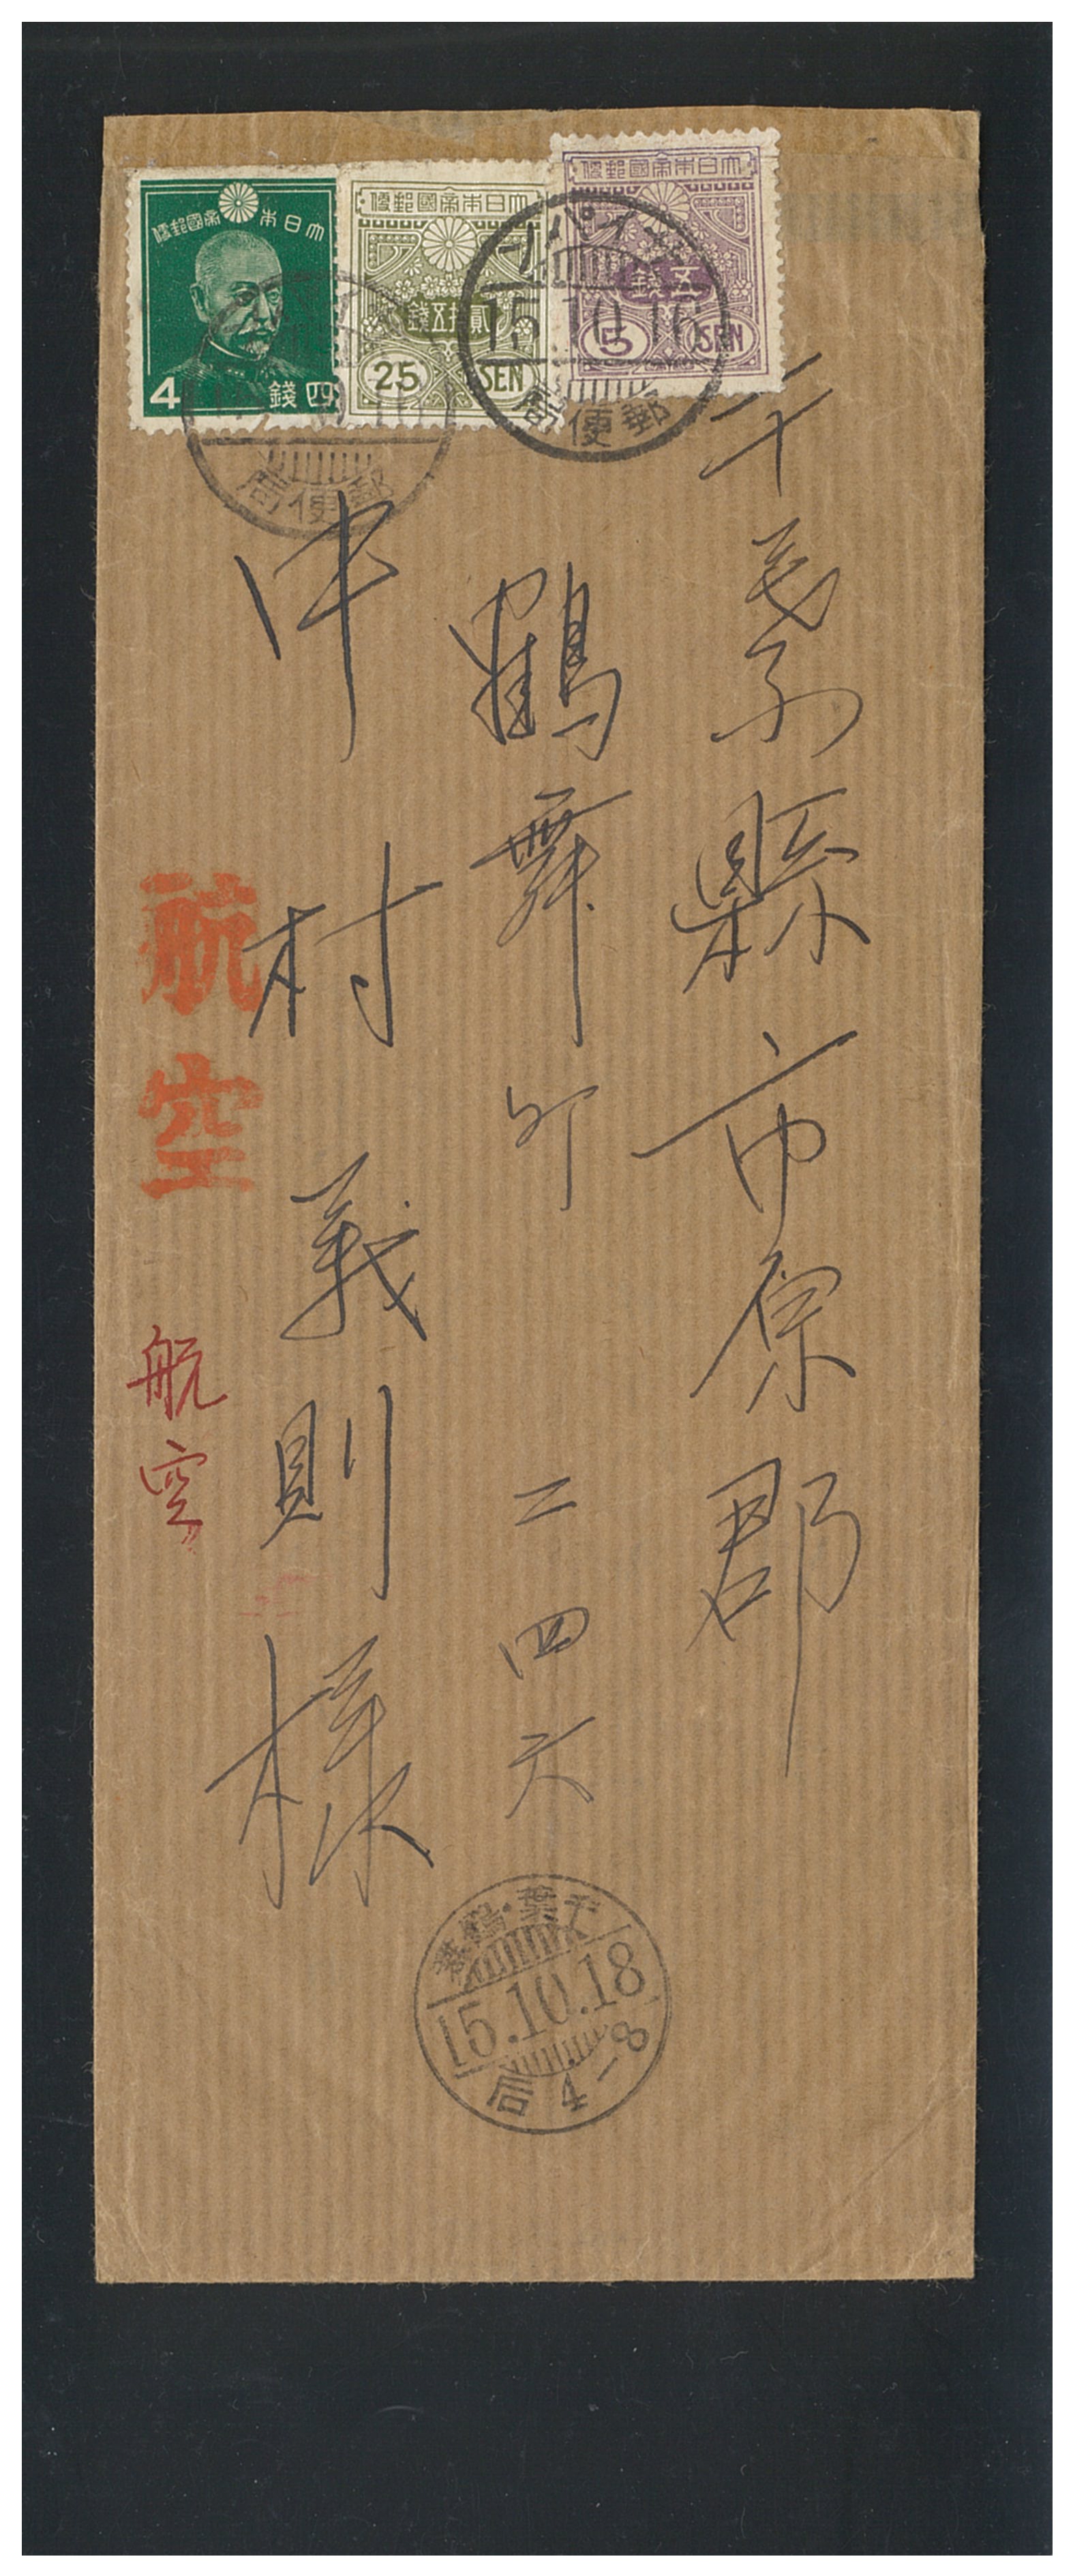 大日本帝國郵便
五錢
5 SEN
大日本帝國郵便
貳拾五錢
25 SEN
大日本帝國郵便
4 四錢
サイパン
15.10.16
郵便局
郵便局
千葉縣市原郡
鶴舞町 二四六
中村義則様
航空
航空
千葉・鶴舞
15.10.18